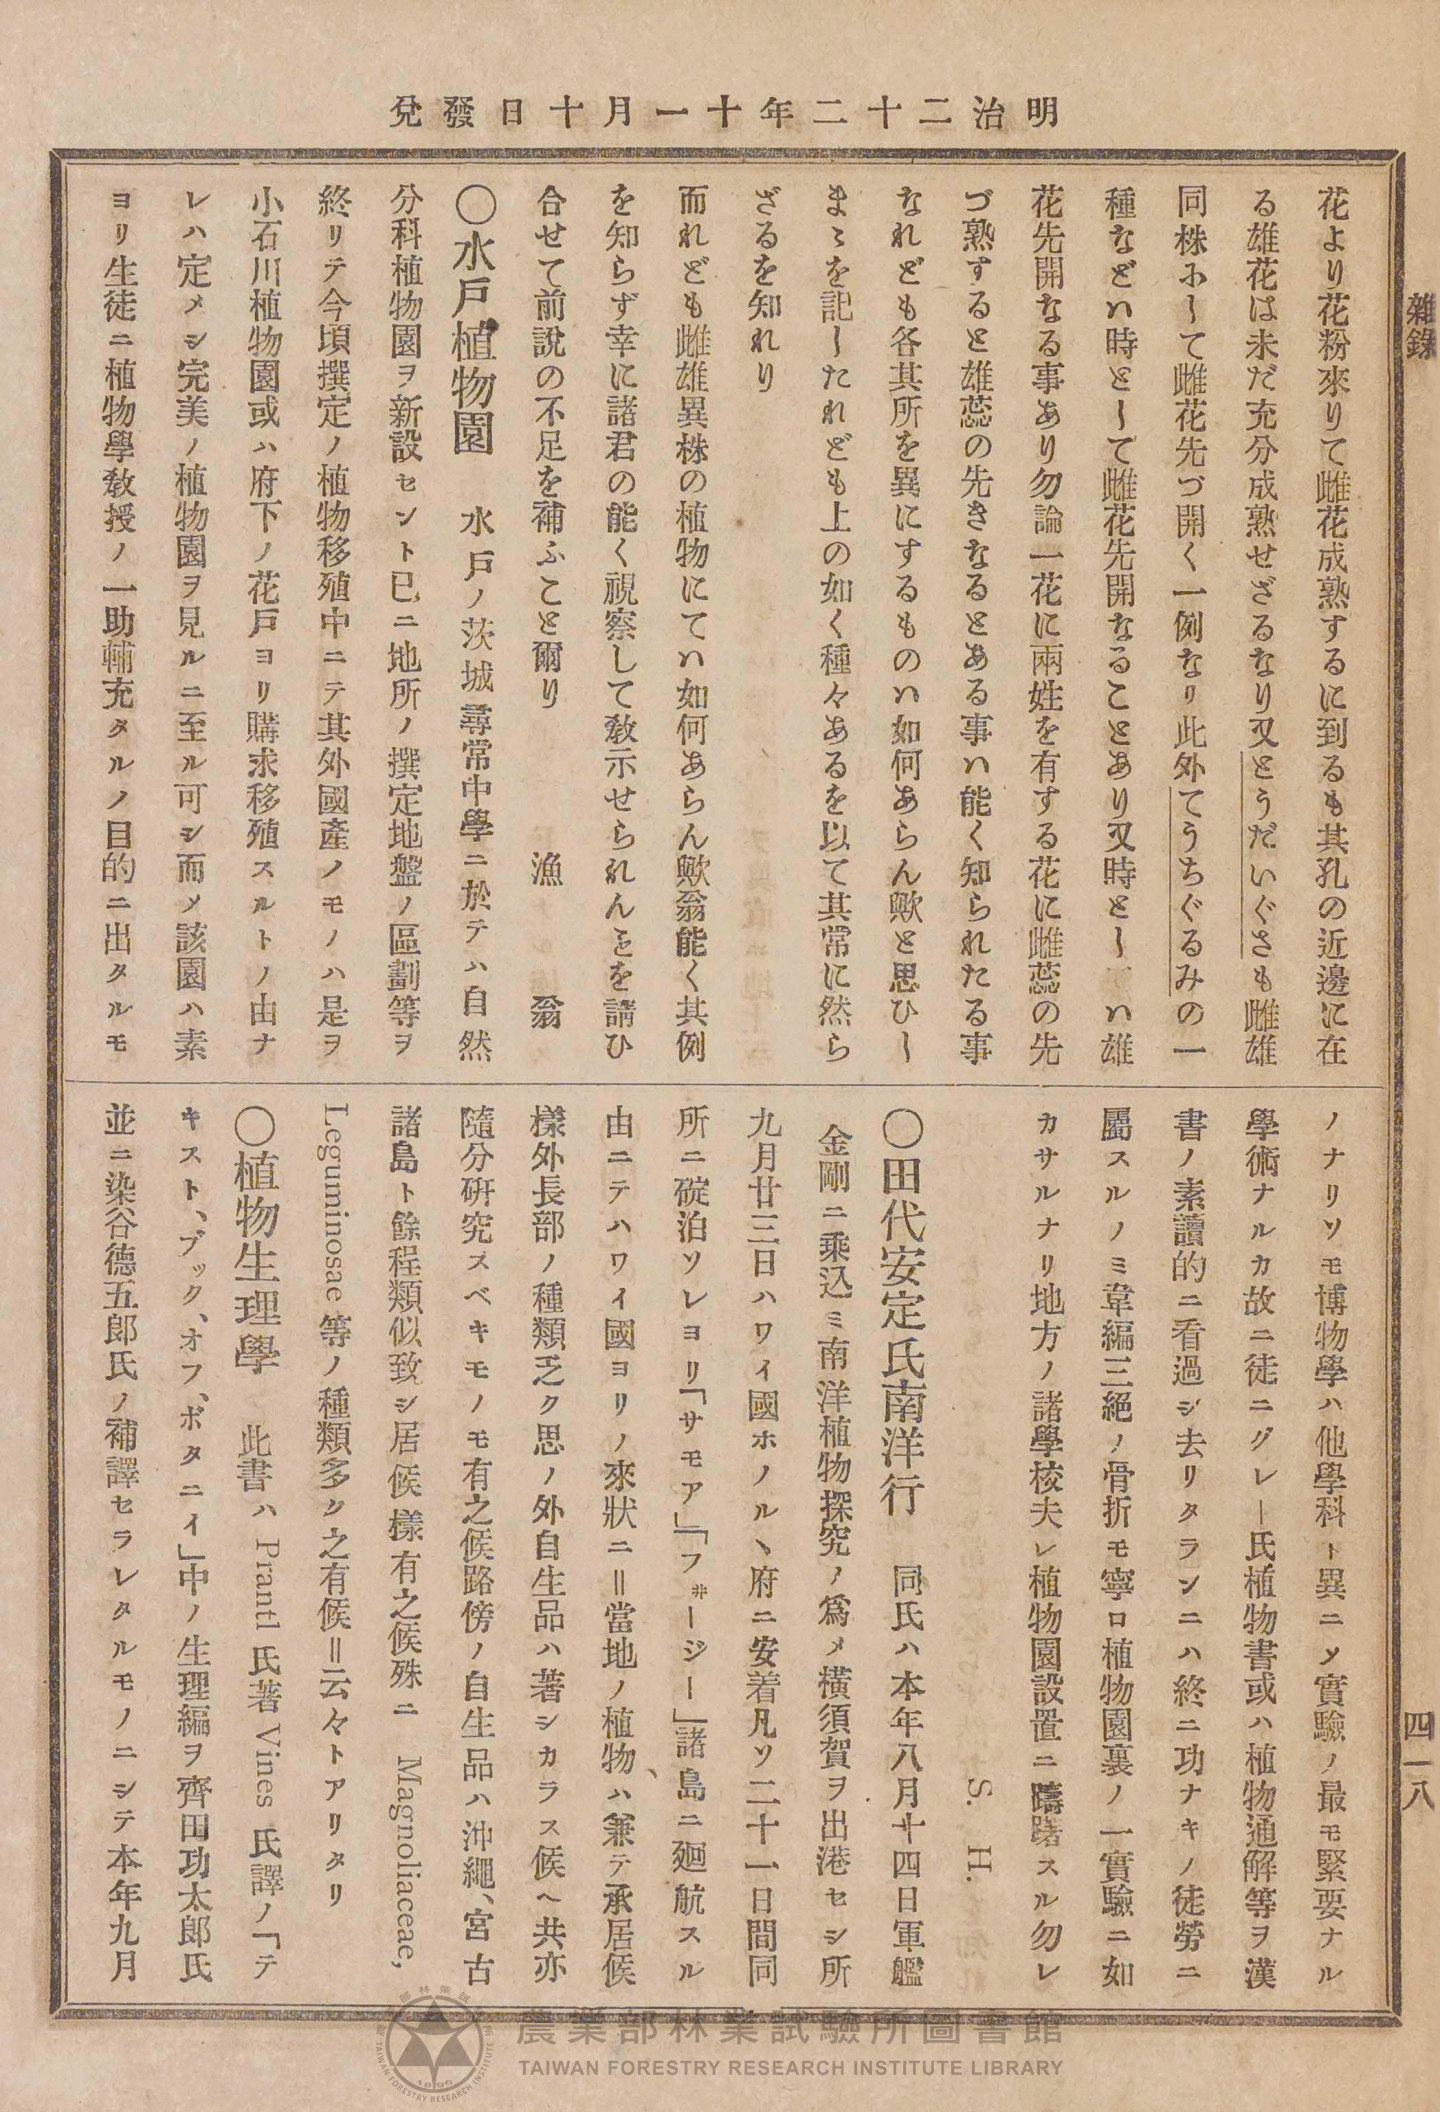 明治二十二年十一月十日發兌
雜錄
四一八
花より花粉來りて雌花成熟するに到るも其孔の近邊に在
る雄花は未だ充分成熟せざるなり又とうだいぐさも雌雄
同株ふして雌花先づ開く一例なり此外てうちぐるみの一
種などハ時として雌花先開なることあり又時としてハ雄
花先開なる事あり勿論一花に兩姓を有する花に雌蕊の先
づ熟すると雄蕊の先きなるとある事ハ能く知られたる事
なれども各其所を異にするものハ如何あらん歟と思ひし
まゝを記したれども上の如く種々あるを以て其常に然ら
ざるを知れり
而れども雌雄異株の植物にてハ如何あらん歟翁能く其例
を知らず幸に諸君の能く視察して敎示せられんヿを請ひ
合せて前說の不足を補ふことゝ爾り 漁翁
〇水戸植物園 水戸ノ茨城尋常中學ニ於テハ自然
分科植物園ヲ新設セント已ニ地所ノ撰定地盤ノ區劃等ヲ
終リテ今頃撰定ノ植物移殖中ニテ其外國產ノモノハ是ヲ
小石川植物園或ハ府下ノ花戸ヨリ購求移殖スルトノ由ナ
レハ定メシ完美ノ植物園ヲ見ルニ至ル可シ而〆該園ハ素
ヨリ生徒ニ植物學敎授ノ一助輔充タルノ目的ニ出タルモ
ノナリソモ博物學ハ他學科ト異ニ〆實驗ノ最モ緊要ナル
學術ナルカ故ニ徒ニグレー氏植物書或ハ植物通解等ヲ漢
書ノ素讀的ニ看過シ去リタランニハ終ニ功ナキノ徒勞ニ
屬スルノミ韋編三絕ノ骨折モ寧ロ植物園裏ノ一實驗ニ如
カサルナリ地方ノ諸學校夫レ植物園設置ニ躊躇スル勿レ
S. H.
〇田代安定氏南洋行 同氏ハ本年八月十四日軍艦
金剛ニ乘込ミ南洋植物探究ノ爲メ橫須賀ヲ出港セシ所
九月廿三日ハワイ國ホノルヽ府ニ安着凡ソ二十一日間同
所ニ碇泊ソレヨリ「サモア」「フ井ージー」諸島ニ廻航スル
由ニテハワイ國ヨリノ來狀ニ＝當地ノ植物ハ兼テ承居候
樣外長部ノ種類乏ク思ノ外自生品ハ著シカラス候ヘ共亦
隨分硏究スベキモノモ有之候路傍ノ自生品ハ沖繩、宮古
諸島ト餘程類似致シ居候樣有之候殊ニ Magnoliaceae,
Leguminosae 等ノ種類多ク之有候＝云々トアリタリ
〇植物生理學 此書ハ Prantl 氏著 Vines 氏譯ノ「テ
キスト、ブック、オフ、ボタニイ」中ノ生理編ヲ齊田功太郎氏
並ニ染谷德五郎氏ノ補譯セラレタルモノニシテ本年九月
農業部林業試驗所圖書館
TAIWAN FORESTRY RESEARCH INSTITUTE LIBRARY